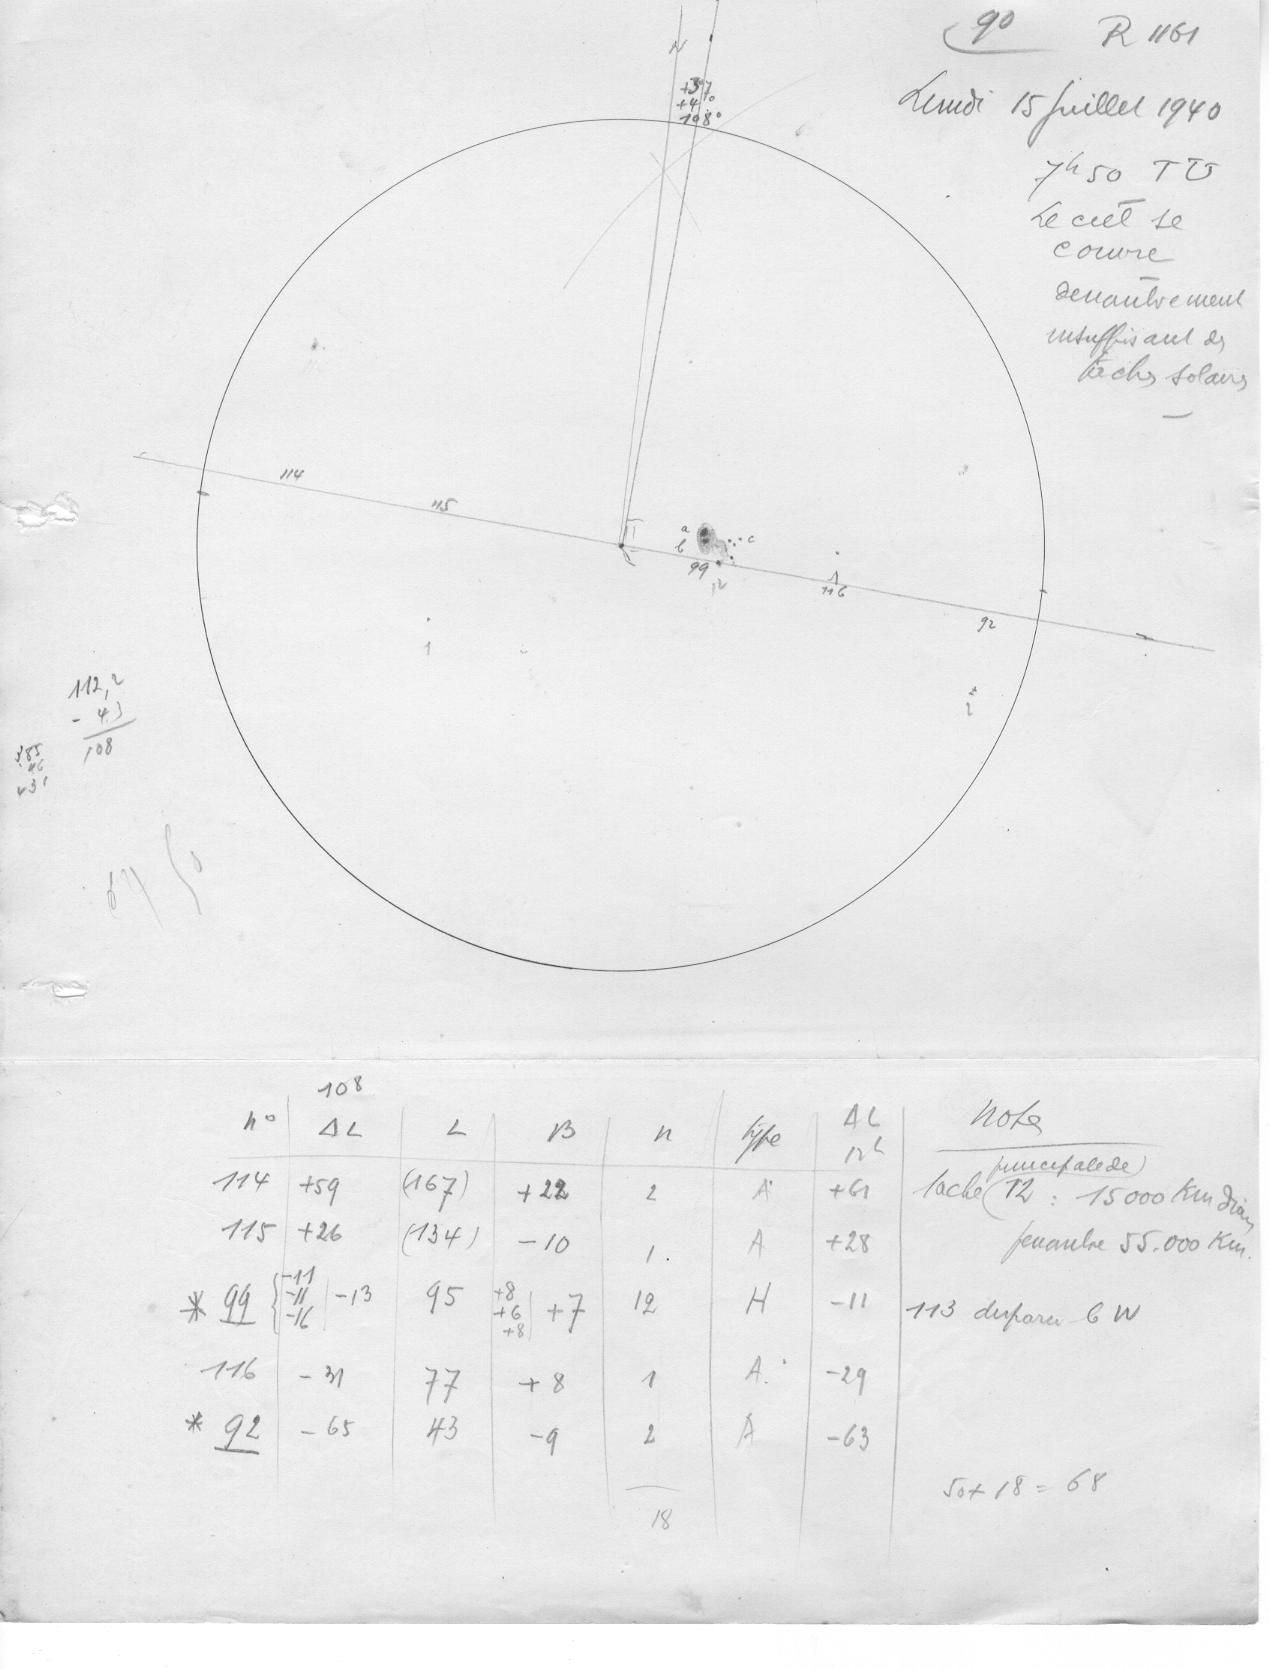 90 R 1161
Lundi 15 juillet 1940
7h50 TU
Le ciel se
couvre
dénombrement
insuffisant des
taches solaires
N
+3°7
+4°
108°
114
115
a
b
c
99
12
1
116
92
2
1
112,2
- 43
108
385
46
431
108
n° ΔL L B n type ΔL 12h Note
114 +59 (167) +22 2 A +61 tache (principale de) 12 : 15000 Km diam
115 +26 (134) -10 1 A +28 penombre 55.000 Km.
* 99 { -11 -11 -16 | -13 95 +8 +6 +8 | +7 12 H -11 113 disparu b W
116 - 31 77 + 8 1 A -29
* 92 - 65 43 -9 2 A -63
18
50+ 18 = 68